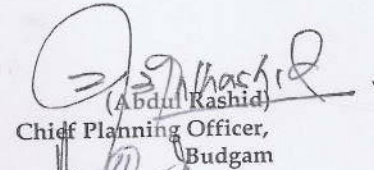 (Abdul Rashid)
Chief Planning Officer,
Budgam